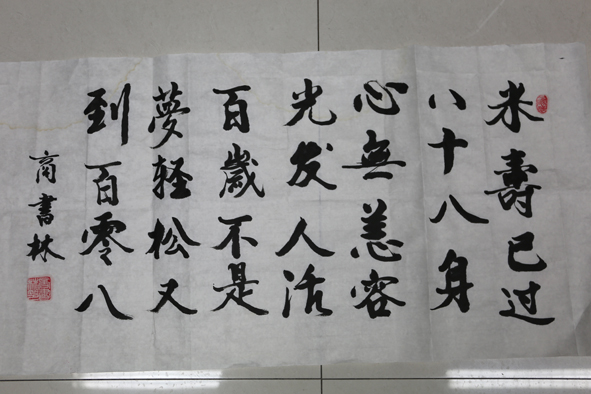 米壽已过
八十八身
心無恙容
光发人活
百歲不是
夢轻松又
到百零八
商書林